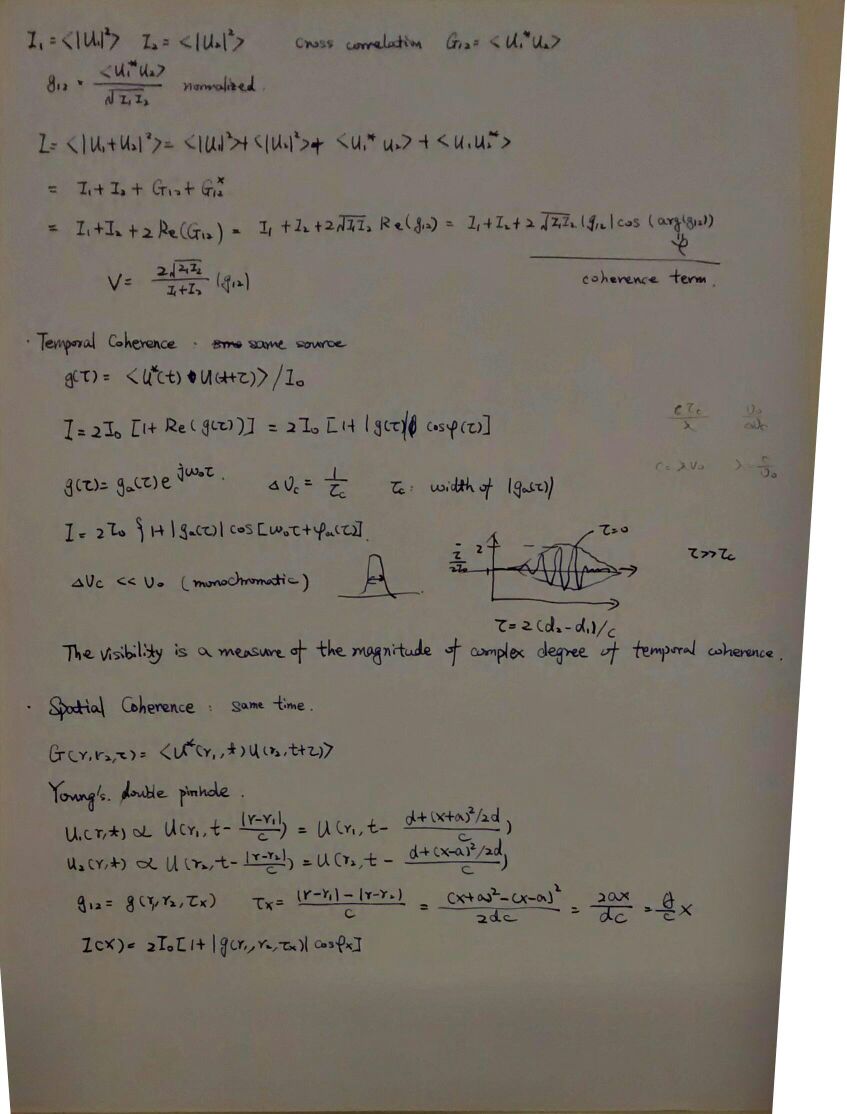 I₁ = <|U₁|²>   I₂ = <|U₂|²>   cross correlation   G₁₂ = <U₁* U₂>
g₁₂ = <U₁* U₂> / √I₁I₂   normalized.
I = <|U₁+U₂|²> = <|U₁|²> + <|U₂|²> + <U₁* U₂> + <U₁U₂*>
= I₁ + I₂ + G₁₂ + G₁₂*
= I₁ + I₂ + 2 Re(G₁₂) = I₁ + I₂ + 2√I₁I₂ Re(g₁₂) = I₁ + I₂ + 2√I₁I₂ |g₁₂| cos(arg(g₁₂))
φ
V = 2√I₁I₂ / (I₁+I₂) |g₁₂|   coherence term.
· Temporal Coherence : same source
g(τ) = <U*(t) U(t+τ)> / I₀
I = 2I₀ [1 + Re(g(τ))] = 2I₀ [1 + |g(τ)| cosφ(τ)]
g(τ) = gₐ(τ) e^{jω₀τ}.   Δυc = 1/τc   τc : width of |gₐ(τ)|
I = 2I₀ {1 + |gₐ(τ)| cos[ω₀τ + φₐ(τ)]
τ=0
I/2I₀   2   1   τ>>τc
Δυc << υ₀ (monochromatic)
τ = 2(d₂-d₁)/c
The visibility is a measure of the magnitude of complex degree of temporal coherence.
· Spatial Coherence : same time.
G(r₁,r₂,τ) = <U*(r₁,t) U(r₂,t+τ)>
Young's. double pinhole.
U₁(r,t) ∝ U(r₁, t - |r-r₁|/c) = U(r₁, t - (d+(x+a)²/2d)/c)
U₂(r,t) ∝ U(r₂, t - |r-r₂|/c) = U(r₂, t - (d+(x-a)²/2d)/c)
g₁₂ = g(r₁,r₂,τx)   τx = (|r-r₁| - |r-r₂|)/c = ((x+a)² - (x-a)²)/2dc = 2ax/dc = θ/c x
I(x) = 2I₀ [1 + |g(r₁,r₂,τx)| cosφx]